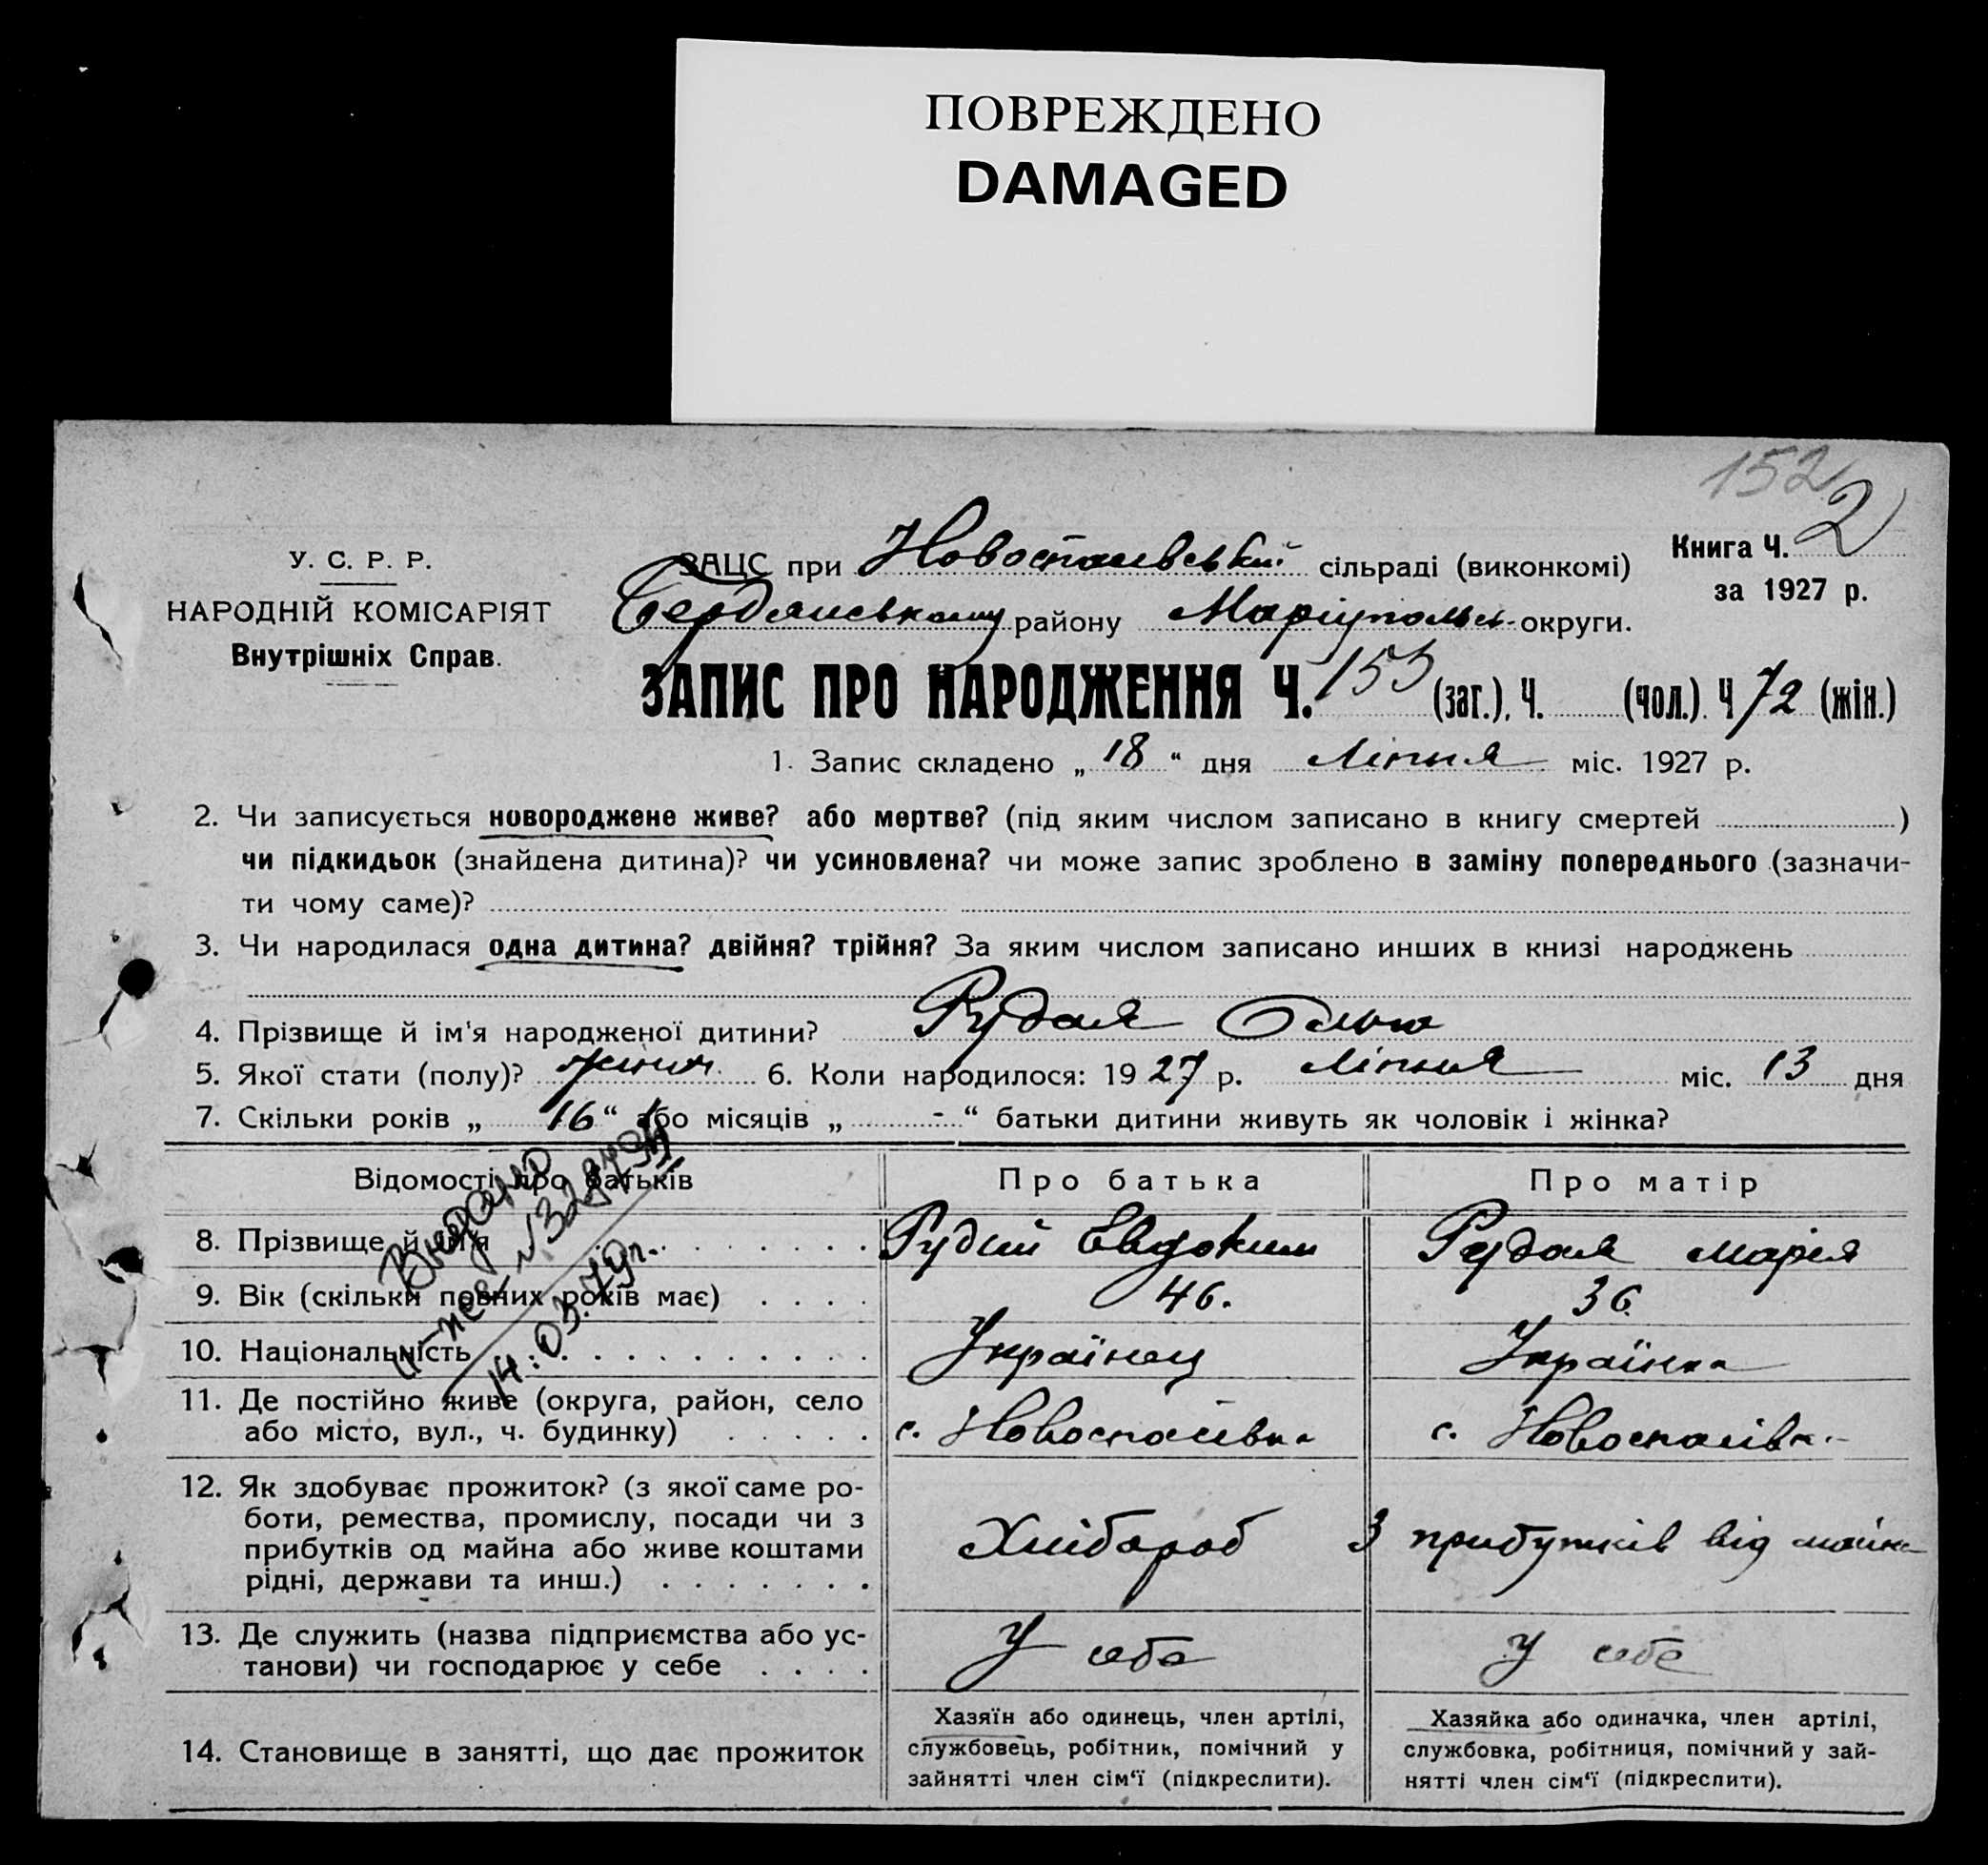 ПОВРЕЖДЕНО
DAMAGED
152
У. С. Р. Р.
НАРОДНІЙ КОМІСАРІЯТ
Внутрішніх Справ.
Книга Ч. 2
за 1927 р.
ЗАЦС при Новоспаївській сільраді (виконкомі)
Бердянському району Маріупольськ. округи.
ЗАПИС ПРО НАРОДЖЕННЯ Ч. 153 (заг.), Ч. (чол.). Ч 72 (жін.)
1. Запис складено „ 18 “ дня Ліпня міс. 1927 р.
2. Чи записується новороджене живе? або мертве? (під яким числом записано в книгу смертей )
чи підкидьок (знайдена дитина)? чи усиновлена? чи може запис зроблено в заміну попереднього (зазначи-
ти чому саме)?
3. Чи народилася одна дитина? двійня? трійня? За яким числом записано инших в книзі народжень
4. Прізвище й ім'я народженої дитини? Рудая
5. Якої стати (полу)? жіноч. 6. Коли народилося: 1927 р. Ліпня міс. 13 дня
7. Скільки років „ 16 “ або місяців „ - “ батьки дитини живуть як чоловік і жінка?
Відомості про батьків Про батька Про матір
8. Прізвище й ім'я Рудий Евдоким Рудая Марія
9. Вік (скільки повних років має) 46. 36.
10. Національність Українец Українка
11. Де постійно живе (округа, район, село
або місто, вул., ч. будинку) с. Новоспаївка с. Новоспаївка
12. Як здобуває прожиток? (з якої саме ро-
боти, ремества, промислу, посади чи з
прибутків од майна або живе коштами
рідні, держави та инш.) Хлібороб З прибутків від майна
13. Де служить (назва підприємства або ус-
танови) чи господарює у себе У себе У себе
14. Становище в занятті, що дає прожиток
Хазяїн або одинець, член артілі,
службовець, робітник, помічний у
зайнятті член сім‘ї (підкреслити).
Хазяйка або одиначка, член артілі,
службовка, робітниця, помічний у зай-
нятті член сім‘ї (підкреслити).
Видано
14.03.79г.